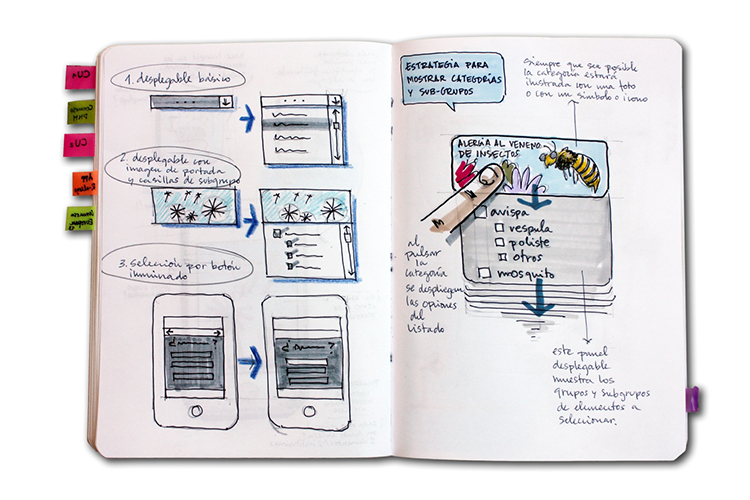 CU1
CU2
APP
1. desplegable básico
2. desplegable con
imagen de portada
y casillas de subgrupo
3. selección por botón
iluminado
¿ ?
¿ ?
ESTRATEGIA PARA
MOSTRAR CATEGORÍAS
Y SUB-GRUPOS
siempre que sea posible
la categoría estará
ilustrada con una foto
o con un símbolo o icono
ALERGIA AL VENENO
DE INSECTOS
avispa
vespula
poliste
otros
mosquito
al
pulsar
la
categoría
se despliegan
las opciones
del
listado
este panel
desplegable
muestra los
grupos y subgrupos
de elementos a
seleccionar.